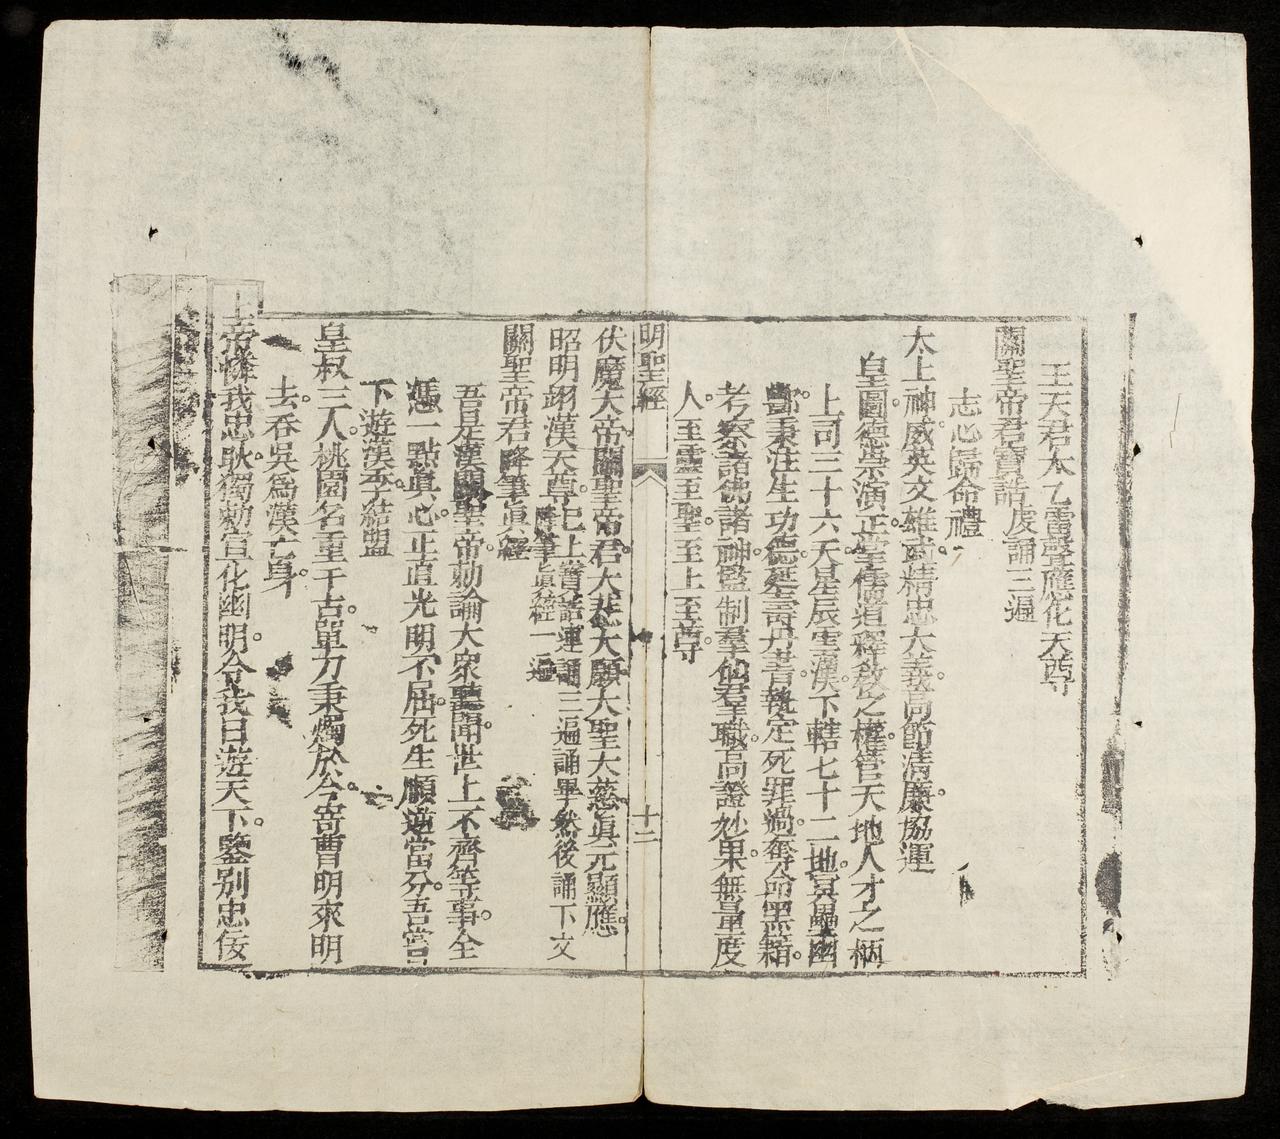 王天君太乙雷聲應化天尊
關聖帝君寶誥虔誦三遍
志心歸命禮
太上神威英文雄武精忠大義高節清廉協運
皇圖德崇演正掌儒道釋教之權管天地人才之柄
上司三十六天星辰雲漢下轄七十二地冥壘幽
酆秉注生功德延壽丹書執定死罪過奪命黑籍
考察諸佛諸神監制羣仙羣職高證妙果無量度
人至靈至聖至上至尊
明聖經
十二
伏魔大帝關聖帝君大悲大願大聖大慈眞元顯應
昭明翊漢天尊已上寶誥連誦三遍誦畢然後誦下文
降筆眞經一遍
關聖帝君降筆眞經
吾是漢關聖帝勅諭大衆聽聞世上不齊等事全
憑一點眞心正直光明不屈死生順逆當分吾當
下遊漢季結盟
皇叔三人桃園名重千古單刀秉燭於今寄曹明來明
去吞吳爲漢亡身
上帝憐我忠耿獨勅宣化幽明令我日遊天下鑒别忠佞